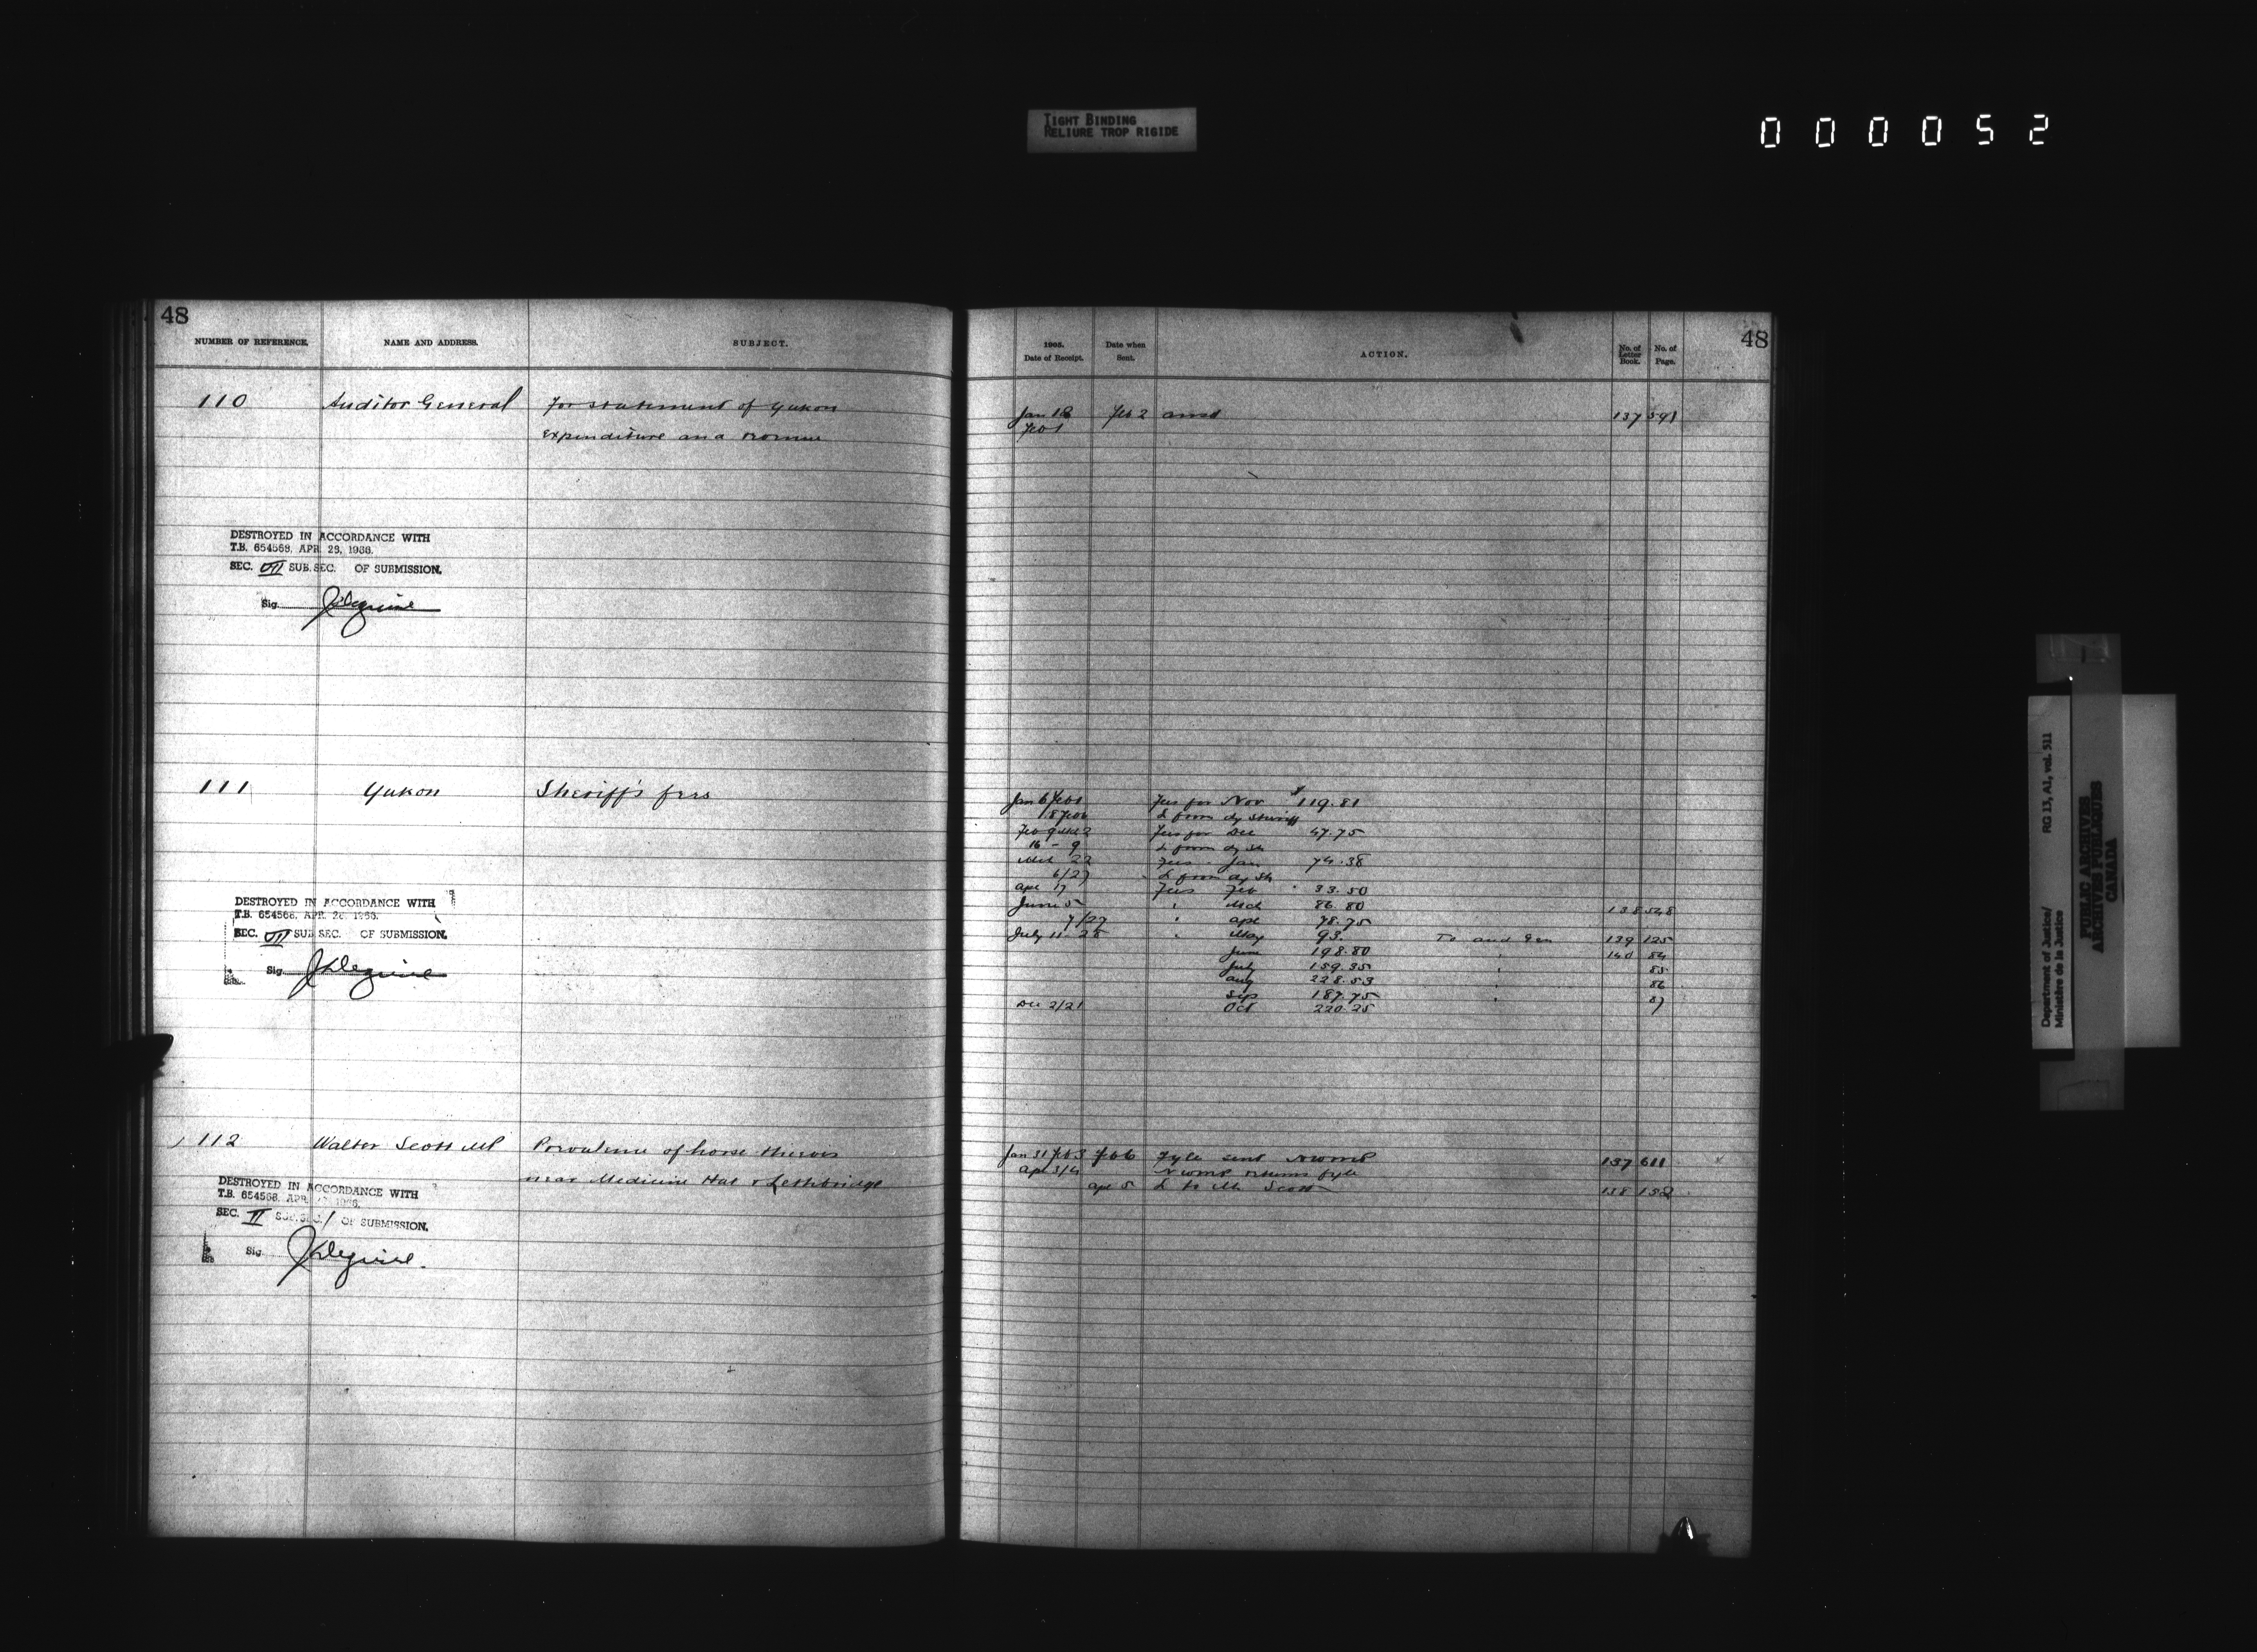 TIGHT BINDING
RELIURE TROP RIGIDE
000052
48
NUMBER OF REFERENCE. NAME AND ADDRESS. SUBJECT.
110 Auditor General For statement of Yukon
expenditure and revenue
DESTROYED IN ACCORDANCE WITH
T.B. 654568, APR. 28, 1966.
SEC. VII SUB.SEC. OF SUBMISSION.
Sig.
111 Yukon Sheriff's fees
DESTROYED IN ACCORDANCE WITH
T.B. 654568, APR. 28, 1966.
SEC. VII SUB SEC. OF SUBMISSION.
Sig.
112 Walter Scott MP Prevalence of horse thieves
near Medicine Hat & Lethbridge
DESTROYED IN ACCORDANCE WITH
T.B. 654568, APR. 1966.
SEC. II SUB.SEC. 1 OF SUBMISSION.
Sig.
48
1905.
Date of Receipt. Date when Sent. ACTION. No. of Letter Book. No. of Page.
Jan 18 Feb 2 ansd 137 591
Feb 1
Jan 6 Feb 1 Fees for Nov $119.81
18 Feb 6 L from dy Sheriff
Feb 9 Mch 2 Fees for Dec 47.75
16 - 9 L from dy Sh
Mch 22 Fees - Jan 74.38
6/27 L from dy Sh
Apr 17 Fees Feb 33.50
June 5 " Mch 86.80 138 548
7/27 " Apr 78.75
July 11 28 " May 93. To Aud Gen 139 125
June 198.80 " 140 84
July 159.35 " 85
Aug 228.53 " 86
Sep 187.75 " 87
Dec 2/21 Oct 220.25
Jan 31 Feb 3 Feb 6 Fyle sent NWMP 137 611
Apr 3/4 NWMP returns fyle
Apr 5 L to Mr Scott 138 152
Department of Justice/ RG 13, A1, vol. 511
Ministère de la Justice
PUBLIC ARCHIVES
ARCHIVES PUBLIQUES
CANADA